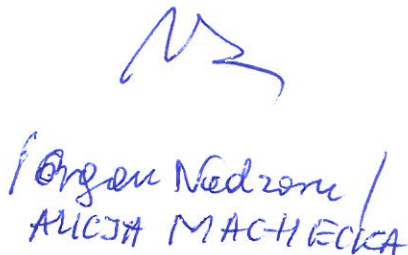 /Organ Nadzoru/
ALICJA MACHECKA